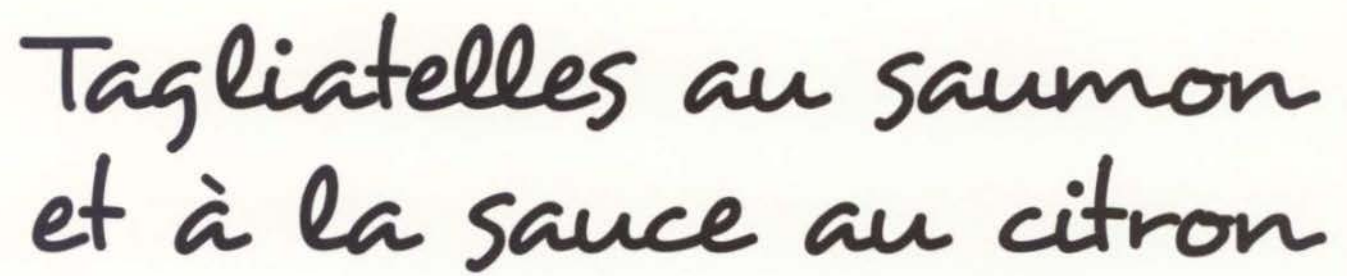 Tagliatelles au saumon
et à la sauce au citron